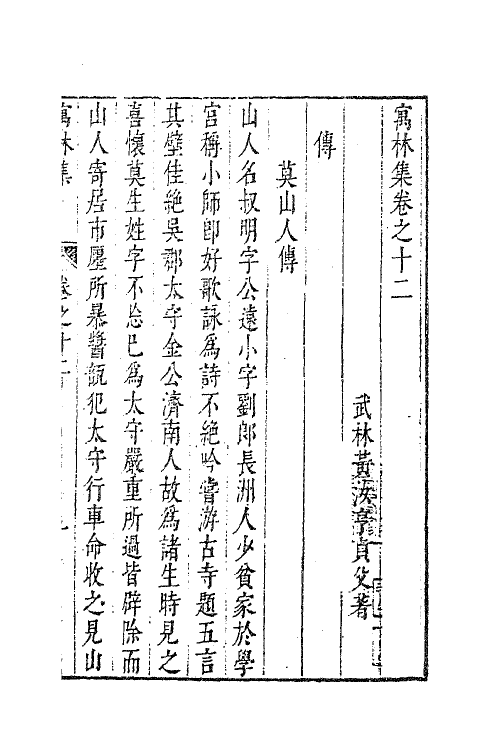 寓林集卷之十二
武林黃汝亨貞父著
傳
莫山人傳
山人名叔明字公遠小字劉郎長洲人少貧家於學
宮稱小師卽好歌詠爲詩不絕吟嘗游古寺題五言
其壁佳絕吳郡太守金公濟南人故爲諸生時見之
喜懷莫生姓字不忘已爲太守嚴重所過皆辟除而
山人寄居市廛所暴醬瓿犯太守行車命收之見山
寓林集 卷之十二